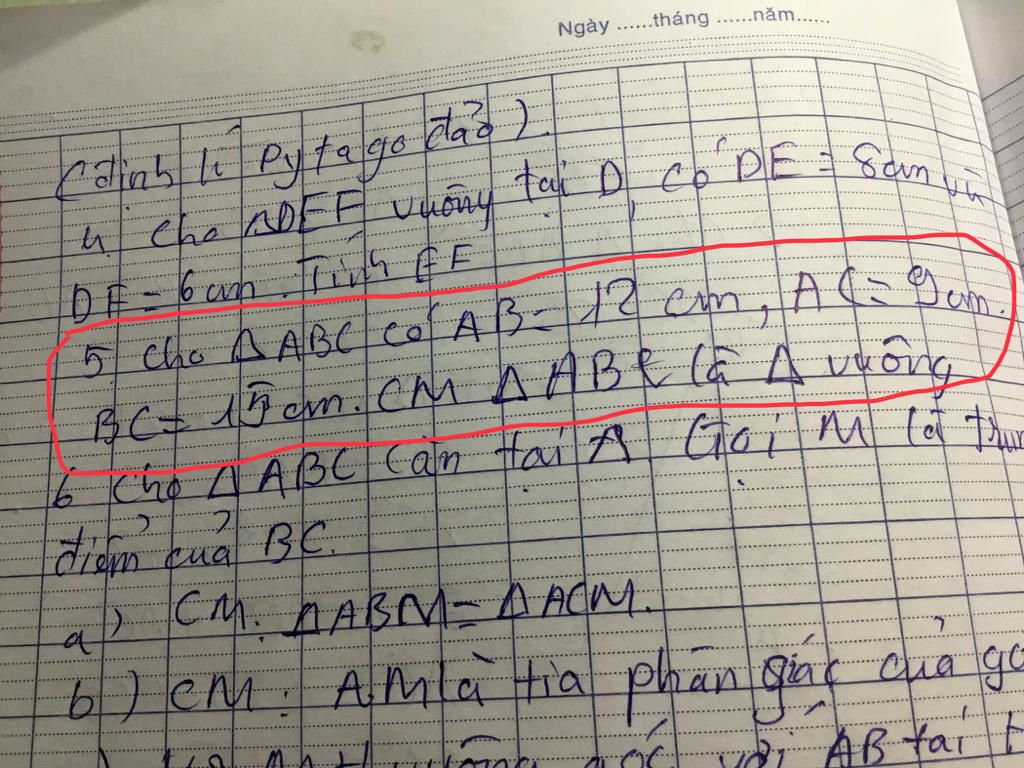 Ngày ......tháng ......năm......
(định lí Pytago đảo).
4. Cho ΔDEF vuông tại D, có DE = 8cm và
DF = 6cm. Tính EF
5 Cho ΔABC có AB = 12 cm, AC = 9cm.
BC = 15cm. CM ΔABC là Δ vuông
6 Cho ΔABC cân tại A Gọi M là
điểm của BC.
a) CM: ΔABM = ΔACM.
b) CM: AM là tia phân giác của
góc với AB tại